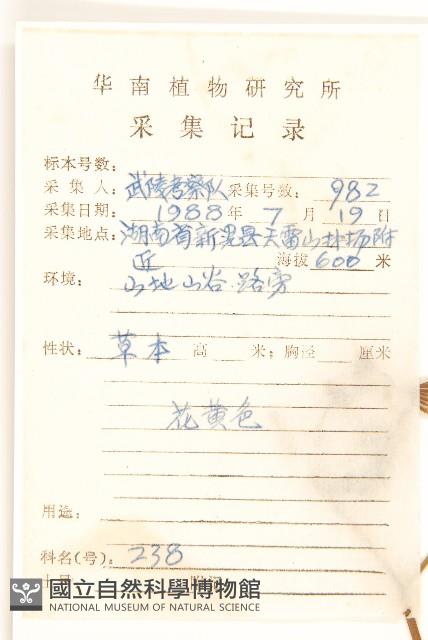 华南植物研究所
采集记录
标本号数:
采集人: 武陵考察队 采集号数: 982
采集日期: 1988年 7月 19日
采集地点: 湖南省新晃县天雷山林场附
近 海拔 600 米
环境: 山地山谷.路旁
性状: 草本 高 米; 胸径 厘米
花黄色
用途:
科名(号): 238
國立自然科學博物館
NATIONAL MUSEUM OF NATURAL SCIENCE